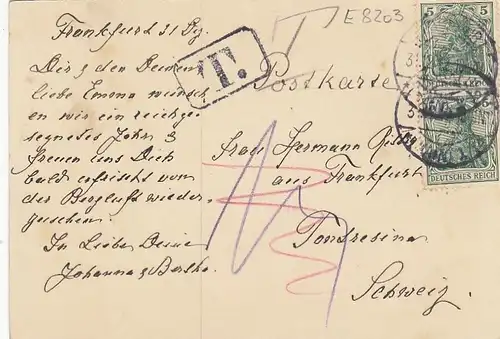 Frankfurt 31 Dz.
Dir & den Deinen
liebe Emma wünsch
en wir ein reichge
segnetes Jahr, &
freuen uns Dich
bald erfrischt von
der Bergluft wieder
zusehen.
In Liebe Deine
Johanna & Bertha.
T.
T
E 8203
Postkarte
Frau Hermann
aus Frankfurt
Pontresina
Schweiz
5 5
DEUTSCHES REICH